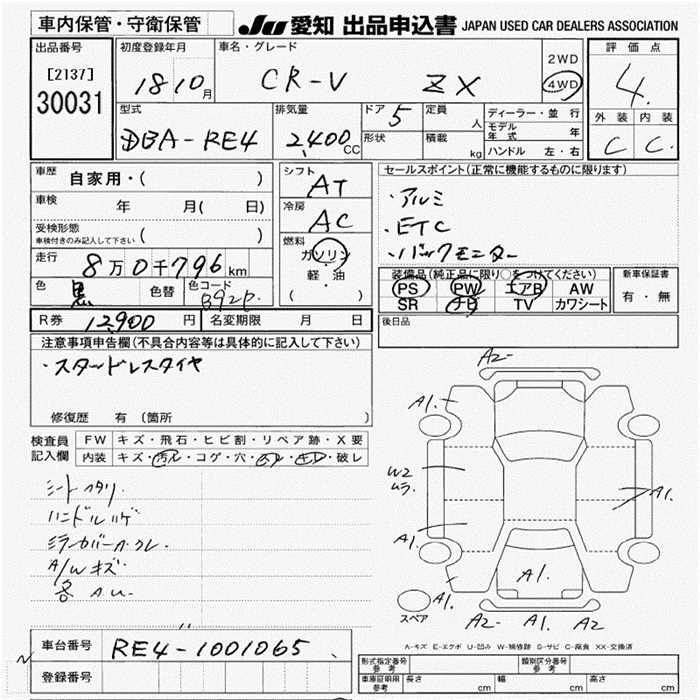 車内保管・守衛保管
JU 愛知 出品申込書 JAPAN USED CAR DEALERS ASSOCIATION
出品番号
[2137]
30031
初度登録年月
18 10月
車名・グレード
CR-V ZX
2WD
4WD
評価点
4
外装 内装
C C
型式
DBA-RE4
排気量
2,400CC
ドア 5
形状
定員 人
積載 kg
ディーラー・並行
モデル年式 年
ハンドル 左・右
車歴 自家用・( )
車検 年 月( 日)
受検形態
車検付きのみ記入して下さい ( )
走行 8万0千796km
色 黒 色替 色コード B92P
R券 12,900円 名変期限 月 日
シフト AT
冷房 AC
燃料
ガソリン
・軽・油
( )
セールスポイント(正常に機能するものに限ります)
・アルミ
・ETC
・バックモニター
装備品(純正品に限り○をつけてください)
PS PW エアB AW
SR ナビ TV カワシート
新車保証書
有・無
後日品
注意事項申告欄(不具合内容等は具体的に記入して下さい)
・スタッドレスタイヤ
修復歴 有 (箇所
検査員記入欄
FW キズ・飛石・ヒビ割・リペア跡・X要
内装 キズ・汚れ・コゲ・穴・・・破レ
シートヘタリ
ハンドルハゲ
ミラーカバー
A/Wキズ
各
A2-
A1.
A1.
W2
ムラ
A1.
A1.
A1.
A1.
スペア
A2- A1. A2
A-キズ E-エクボ U-凹み W-補修跡 S-サビ C-腐食 XX-交換済
車台番号 RE4-1001065
登録番号
形式指定番号 参考
類別区分番号 参考
車庫証明用 参考 長さ cm 幅 cm 高さ cm